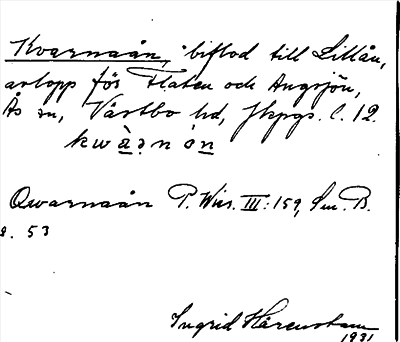 Kvarnaån, biflod till Lillån,
avlopp för Flaten och Angsjön,
Ås sn, Västbo hd, Jkpgs. l. 12.
kwàạn ó̤n
Qwarnaån P. Wies. III: 159, Sm. B.
s. 53
Ingrid Härenstam
1931